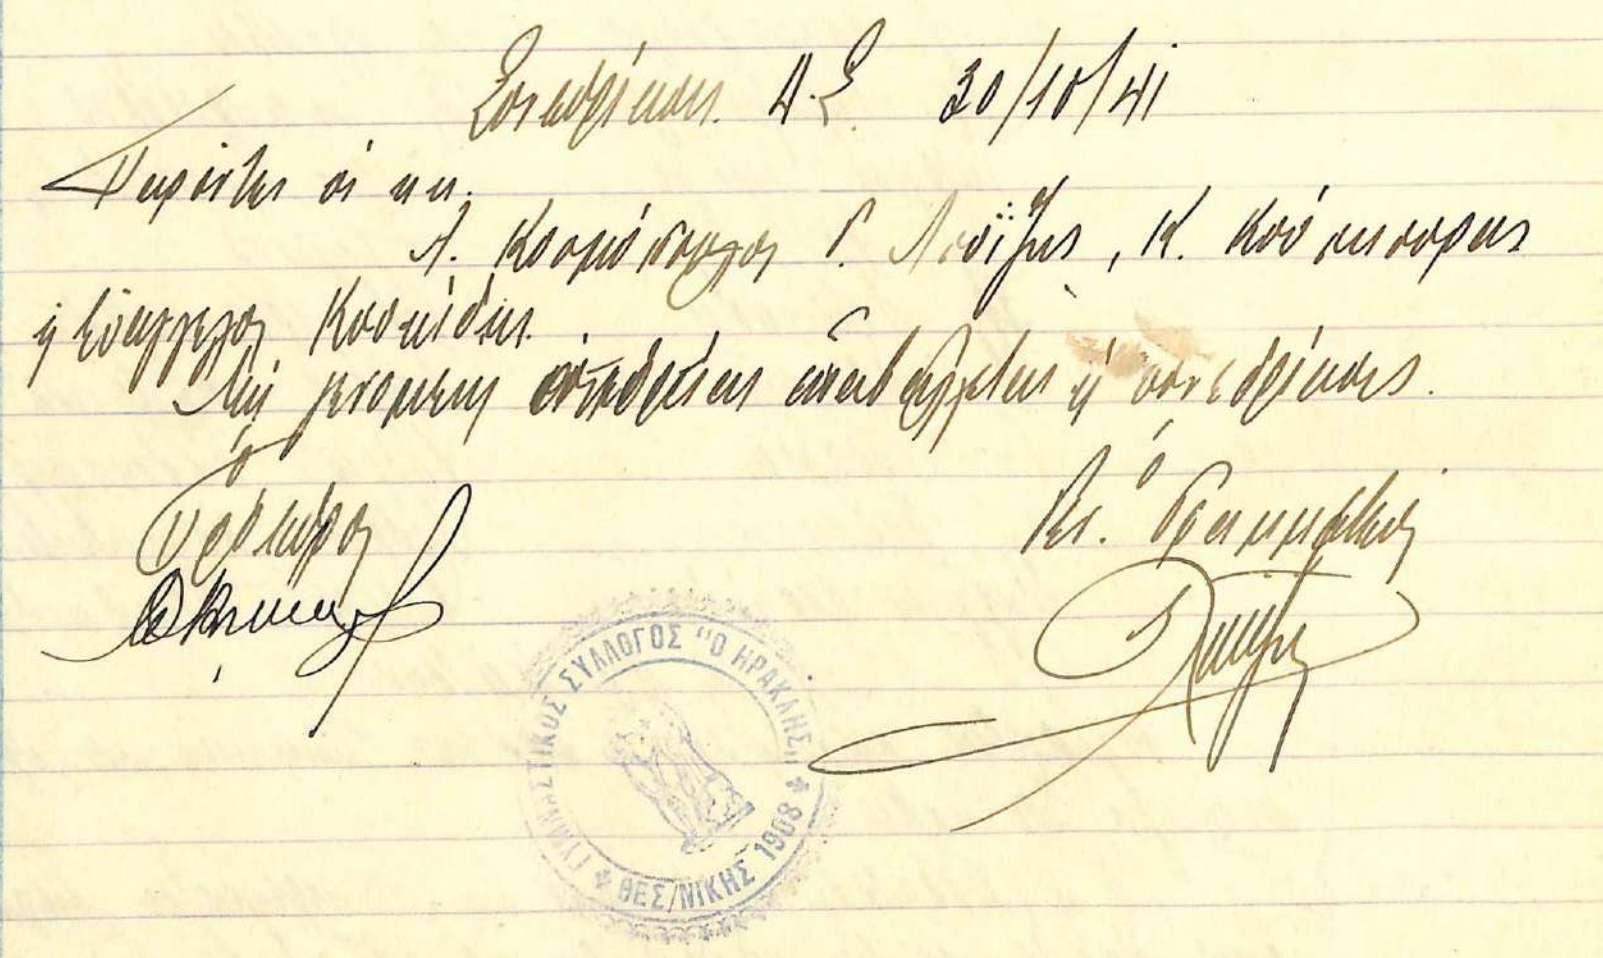 Συνεδρίασις Δ.Σ. 30/10/41
Παρόντες οἱ κ.κ.
Λ. Κοσμόπουλος Γ. Λοΐζης, Κ.
ἡ Εὐάγγελος Κοσκίδης.
Μὴ γενομένης ἀναβάλλεται ἡ συνεδρίασις.
ὁ ὁ
Πρόεδρος Γεν. Γραμματεύς
ΓΥΜΝΑΣΤΙΚΟΣ ΣΥΛΛΟΓΟΣ "Ο ΗΡΑΚΛΗΣ" ΘΕΣ/ΝΙΚΗΣ 1908